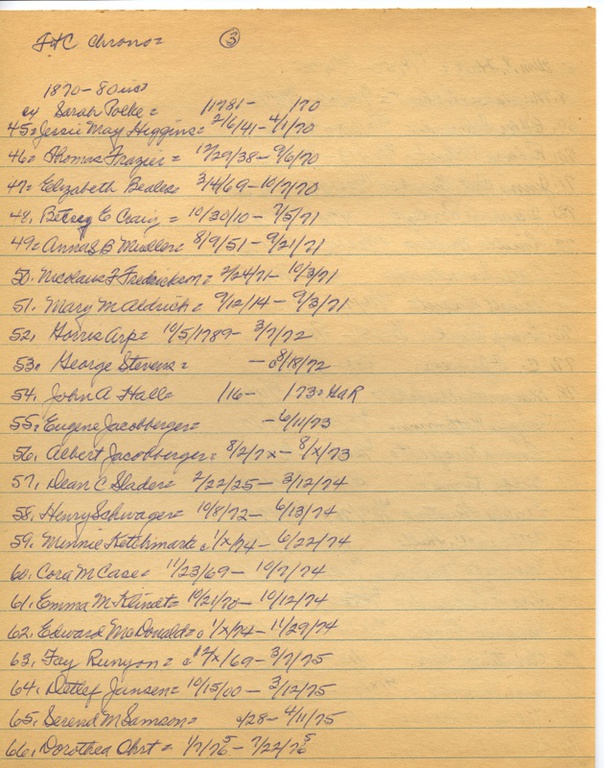 FHC chrono= ③
1870-80 inst
ex Sarah Polke= / /1781- /70
45= Jessie May Higgins= 2/6/41-4/1/70
46= Thomas Frazier= 12/29/38-9/6/70
47= Elizabeth Beales= 3/4/69-10/7/70
48. Betsey E Craig= 10/20/10-7/5/71
49= Anna B Mueller= 8/9/51-9/21/71
50. Nicolaus F Fredrickson= 2/24/71-10/3/71
51. Mary M Aldrich= 9/12/14-9/3/71
52. Gorris Arp= 10/5/1789-3/7/72
53= George Stevens= -8/18/72
54. John A Hall= /16- /73=GaR
55= Eugene Jacobberger= -6/11/73
56. Albert Jacobberger= 8/2/7x-8/x/73
57. Dean C Slader= 2/22/25-3/12/74
58. Henry Schwager= 10/8/72-6/13/74
59. Minnie Ketchmark c 1/x/74-6/22/74
60. Cora M Case= 11/23/69-10/7/74
61. Emma M Klindt= 10/21/70-10/12/74
62. Edward McDonald= c 1/x/74-11/29/74
63. Fay Runyon= c 12/x/69-3/7/75
64. Detlef Jansen= 10/15/00-3/12/75
65= Serend M Samson= 4/28-4/11/75
66. Dorothea Ohrt= 1/7/75-7/22/75